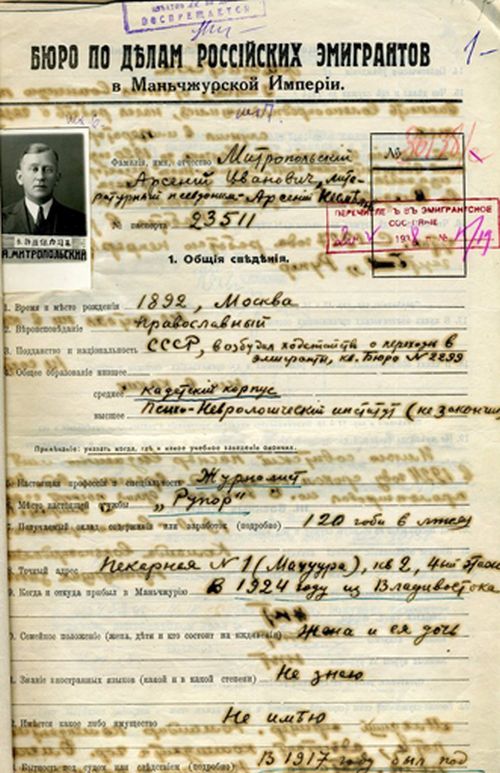 ВОСПРЕЩАЕТСЯ
1-
БЮРО ПО ДѢЛАМ РОССІЙСКИХ ЭМИГРАНТОВ
в Маньчжурской Имперіи.
Фамилія, имя, отчество Митропольскій
Арсеній Иванович, лите-
ратурный псевдоним - Арсеній
№ паспорта 23511
№
ПЕРЕЧИСЛЕ Ъ ВЪ ЭМИГРАНТСКОЕ
СОСТОЯНІЕ
А.МИТРОПОЛЬСКИЙ
1. Общія свѣдѣнія.
1. Время и мѣсто рожденія 1892, Москва
2. Вѣроисповѣданіе Православный
3. Подданство и національность СССР, возбудил ходатайство о переходѣ в
эмигранты, кв. Бюро № 2299
4. Общее образованіе низшее
среднее Кадетскій корпус
высшее Психо-Неврологическій институт (не закончил
Примѣчаніе: указать когда, гдѣ и какое учебное заведеніе окончил.
5. Настоящая профессія и спеціальность Журналист
6. Мѣсто настоящей службы „Рупор"
7. Получаемый оклад содержанія или заработок (подробно) 120 гоби в мѣсяц
8. Точный адрес Пекарная № 1 (Мацуура), кв 2, 4ый этаж
9. Когда и откуда прибыл в Маньчжурію В 1924 году из Владивостока
0. Семейное положеніе (жена, дѣти и кто состоит на иждивеніи) Жена и ея дочь
1. Знаніе иностранных языков (какой и в какой степени) Не знаю
2. Имѣется какое либо имущество Не имѣю
3. Бытность под судом или слѣдствіем (подробно) В 1917 году был под